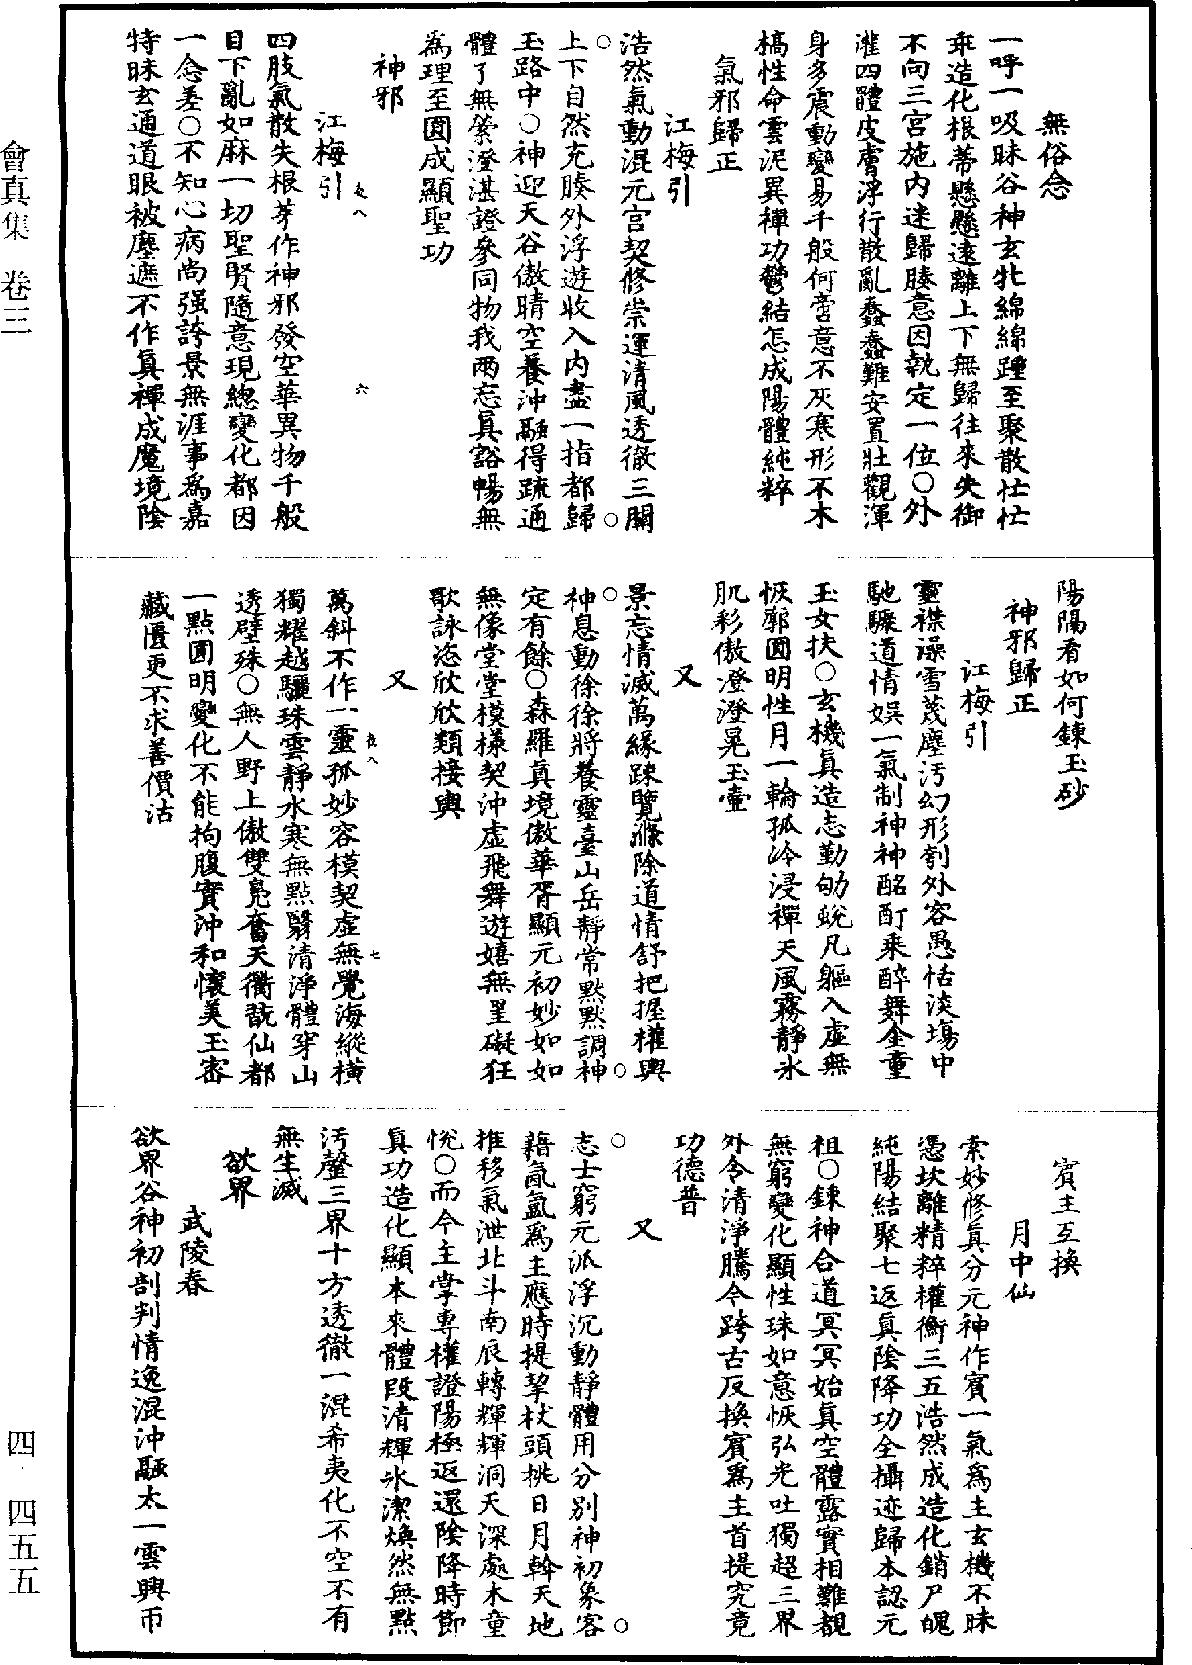 無俗念
一呼一吸昧谷神玄牝綿綿踵至聚散忙忙
乖造化根蒂懸懸遠離上下無歸往來失御
不向三宮施內迷歸腠意因執定一位○外
灌四體皮膚浮行散亂蠢蠢難安置壯觀渾
身多震動變易千般何啻意不灰寒形不木
槁性命雲泥異禪功鬱結怎成陽體純粹
氣邪歸正
江梅引
浩然氣動混元宮契修崇運清風透徹三關
上下自然充腠外浮遊收入內盡一指都歸
玉路中○神迎天谷傲晴空養沖融得疏通
體了無縈澄湛證參同物我兩忘真谿暢無
為理至圓成顯聖功
神邪
江梅引
四肢氣散失根芽作神邪發空華異物千般
目下亂如麻一切聖賢隨意現總變化都因
一念差○不知心病尚强誇景無涯事為嘉
特昧玄通道眼被塵遮不作真禪成魔境陰
陽隔看如何鍊玉砂
神邪歸正
江梅引
靈襟澡雪蔑塵污幻形刳外容愚恬淡塲中
馳驟道情娛一氣制神神酩酊乘醉舞金童
玉女扶○玄機真造志勤劬蛻凡軀入虛無
恢廓圓明性月一輪孤冷浸禪天風霧靜氷
肌彩傲澄澄晃玉壷
又
景忘情滅萬緣踈覽滌除道情舒把握權輿
神息動徐徐將養靈臺山岳靜常默默調神
定有餘○森羅真境傲華胥顯元初妙如如
無像堂堂模樣契沖虛飛舞遊嬉無罣礙狂
歌詠恣欣欣類接輿
又
萬斜不作一靈孤妙容模契虛無覺海縱橫
獨耀越驪珠雲靜水寒無點翳清淨體穿山
透壁殊○無人野上傲雙鳧奮天衢翫仙都
一點圓明變化不能拘腹實沖和懷美玉密
藏匱更不求善價沽
賓主互換
月中仙
索妙修真分元神作賓一氣為主玄機不昧
憑坎離精粹權衡三五浩然成造化銷尸魄
純陽結聚七返真陰降功全攝迹歸本認元
祖○鍊神合道冥冥始真空體露實相難覩
無窮變化顯性珠如意恢弘光吐獨超三界
外令清淨騰今跨古反換賓為主首提究竟
功德普
又
志士窮元派浮沉動靜體用分別神初象客
藉氤氳為主應時提挈杖頭挑日月斡天地
推移氣泄北斗南辰轉輝輝洞天深處木童
悅○而今主掌專權證陽極返還陰降時節
真功造化顯本來體段清輝氷潔煥然無點
污罄三界十方透徹一混希夷化不空不有
無生滅
欲界
武陵春
欲界谷神初剖判情逸混沖融太一雲興帀
會真集 卷三
四·四五五